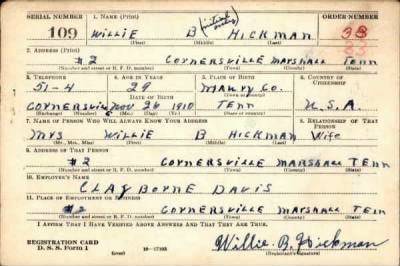 SERIAL NUMBER 1. NAME (Print) (initial only) ORDER NUMBER
109 WILLIE B HICKMAN 33
(First) (Middle) (Last) 33
2. ADDRESS (Print)
#2 CORNERSVILLE MARSHALL TENN
(Number and street or R. F. D. number) (Town) (County) (State)
3. TELEPHONE 4. AGE IN YEARS 5. PLACE OF BIRTH 6. COUNTRY OF CITIZENSHIP
51-4 29 MAURY CO.
DATE OF BIRTH
CORNERSVILLE NOV 26 1910 TENN U.S.A.
(Exchange) (Number) (Mo.) (Day) (Yr.) (State or country)
7. NAME OF PERSON WHO WILL ALWAYS KNOW YOUR ADDRESS 8. RELATIONSHIP OF THAT PERSON
MRS WILLIE B HICKMAN Wife
(Mr., Mrs., Miss) (First) (Middle) (Last)
9. ADDRESS OF THAT PERSON
#2 CORNERSVILLE MARSHALL TENN
(Number and street or R. F. D. number) (Town) (County) (State)
10. EMPLOYER'S NAME
CLAYBORNE DAVIS
11. PLACE OF EMPLOYMENT OR BUSINESS
#2 CORNERSVILLE MARSHALL TENN
(Number and street or R. F. D. number) (Town) (County) (State)
I AFFIRM THAT I HAVE VERIFIED ABOVE ANSWERS AND THAT THEY ARE TRUE.
REGISTRATION CARD
D. S. S. Form 1 (over) 16-17105 Willie B. Hickman
(Registrant's signature)